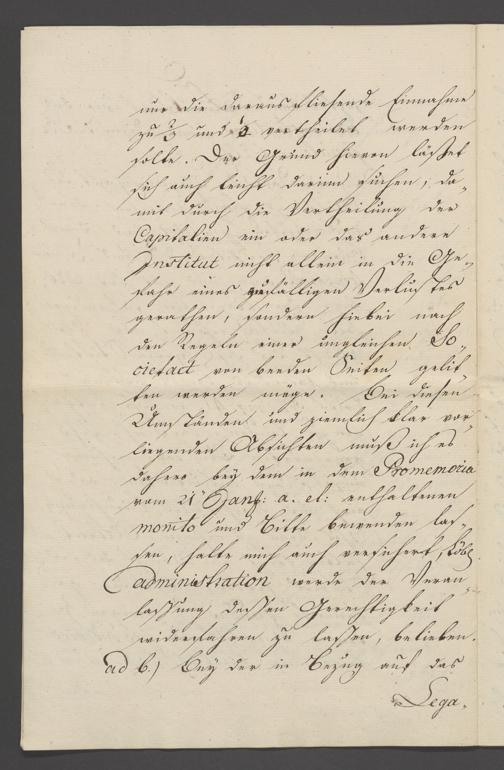 nur die daraus fließende Einnahme
zu 2/3 und 1/3 vertheilet werden
solte. Der Grund hievon lässet
sich auch leicht darinn suchen, da-
mit durch die Vertheilung der
Capitalien ein oder das andere
Institut nicht allein in die Ge-
fahr eines zufälligen Verlustes
gerathen, sondern hiebei nach
den Regeln einer ungleichen So-
cietaet von beeden Seiten gelit-
ten werden möge. Bei diesen
Umständen und ziemlich klar vor-
liegenden Absichten muß ich es
dahero bey dem in dem Promemoria
vom 21t Januar: a. el: enthaltenen
monito und Bitte bewenden las-
sen, halte mich auch versichert, Löbl
administration werde der Veran-
lassung dessen Gerechtigkeit
widerfahren zu lassen, belieben.
ad b.) Bey der in Bezug auf das
Lega-